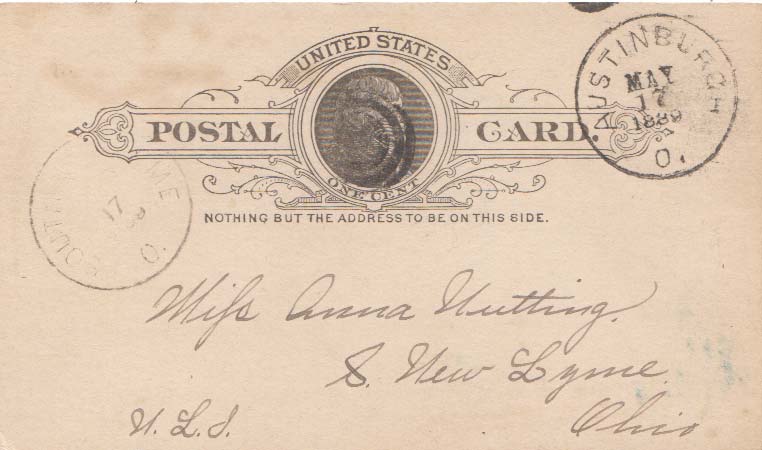 UNITED STATES
POSTAL CARD.
ONE CENT
NOTHING BUT THE ADDRESS TO BE ON THIS SIDE.
AUSTINBURGH
MAY
17
1889
O.
SOUTH
ME
17
O.
Miss Anna Nutting.
S. New Lyme
Ohio
N. L. I.